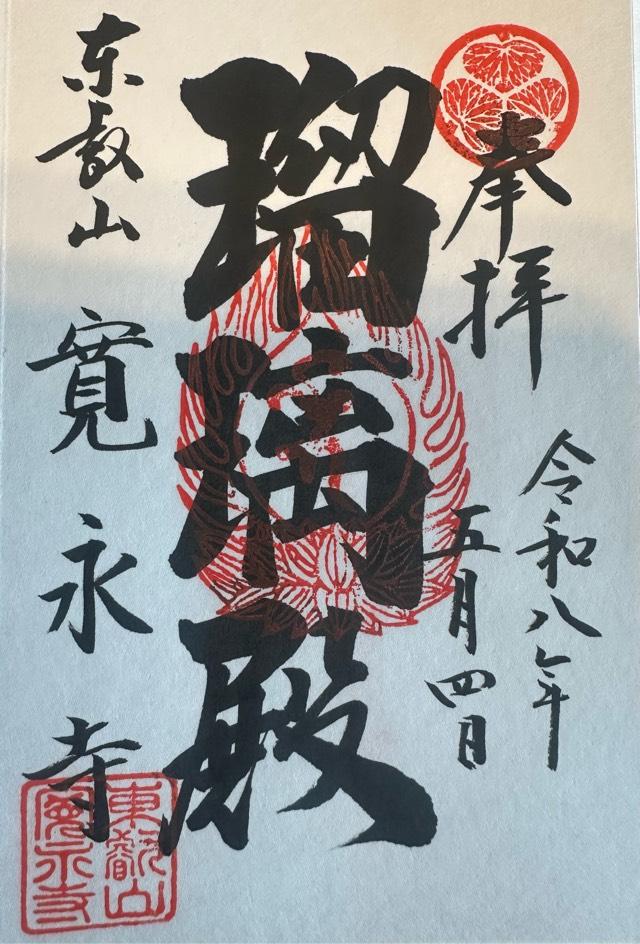 奉拝
令和八年
五月四日
瑠璃殿
东叡山
寛永寺
東叡山
寛永寺